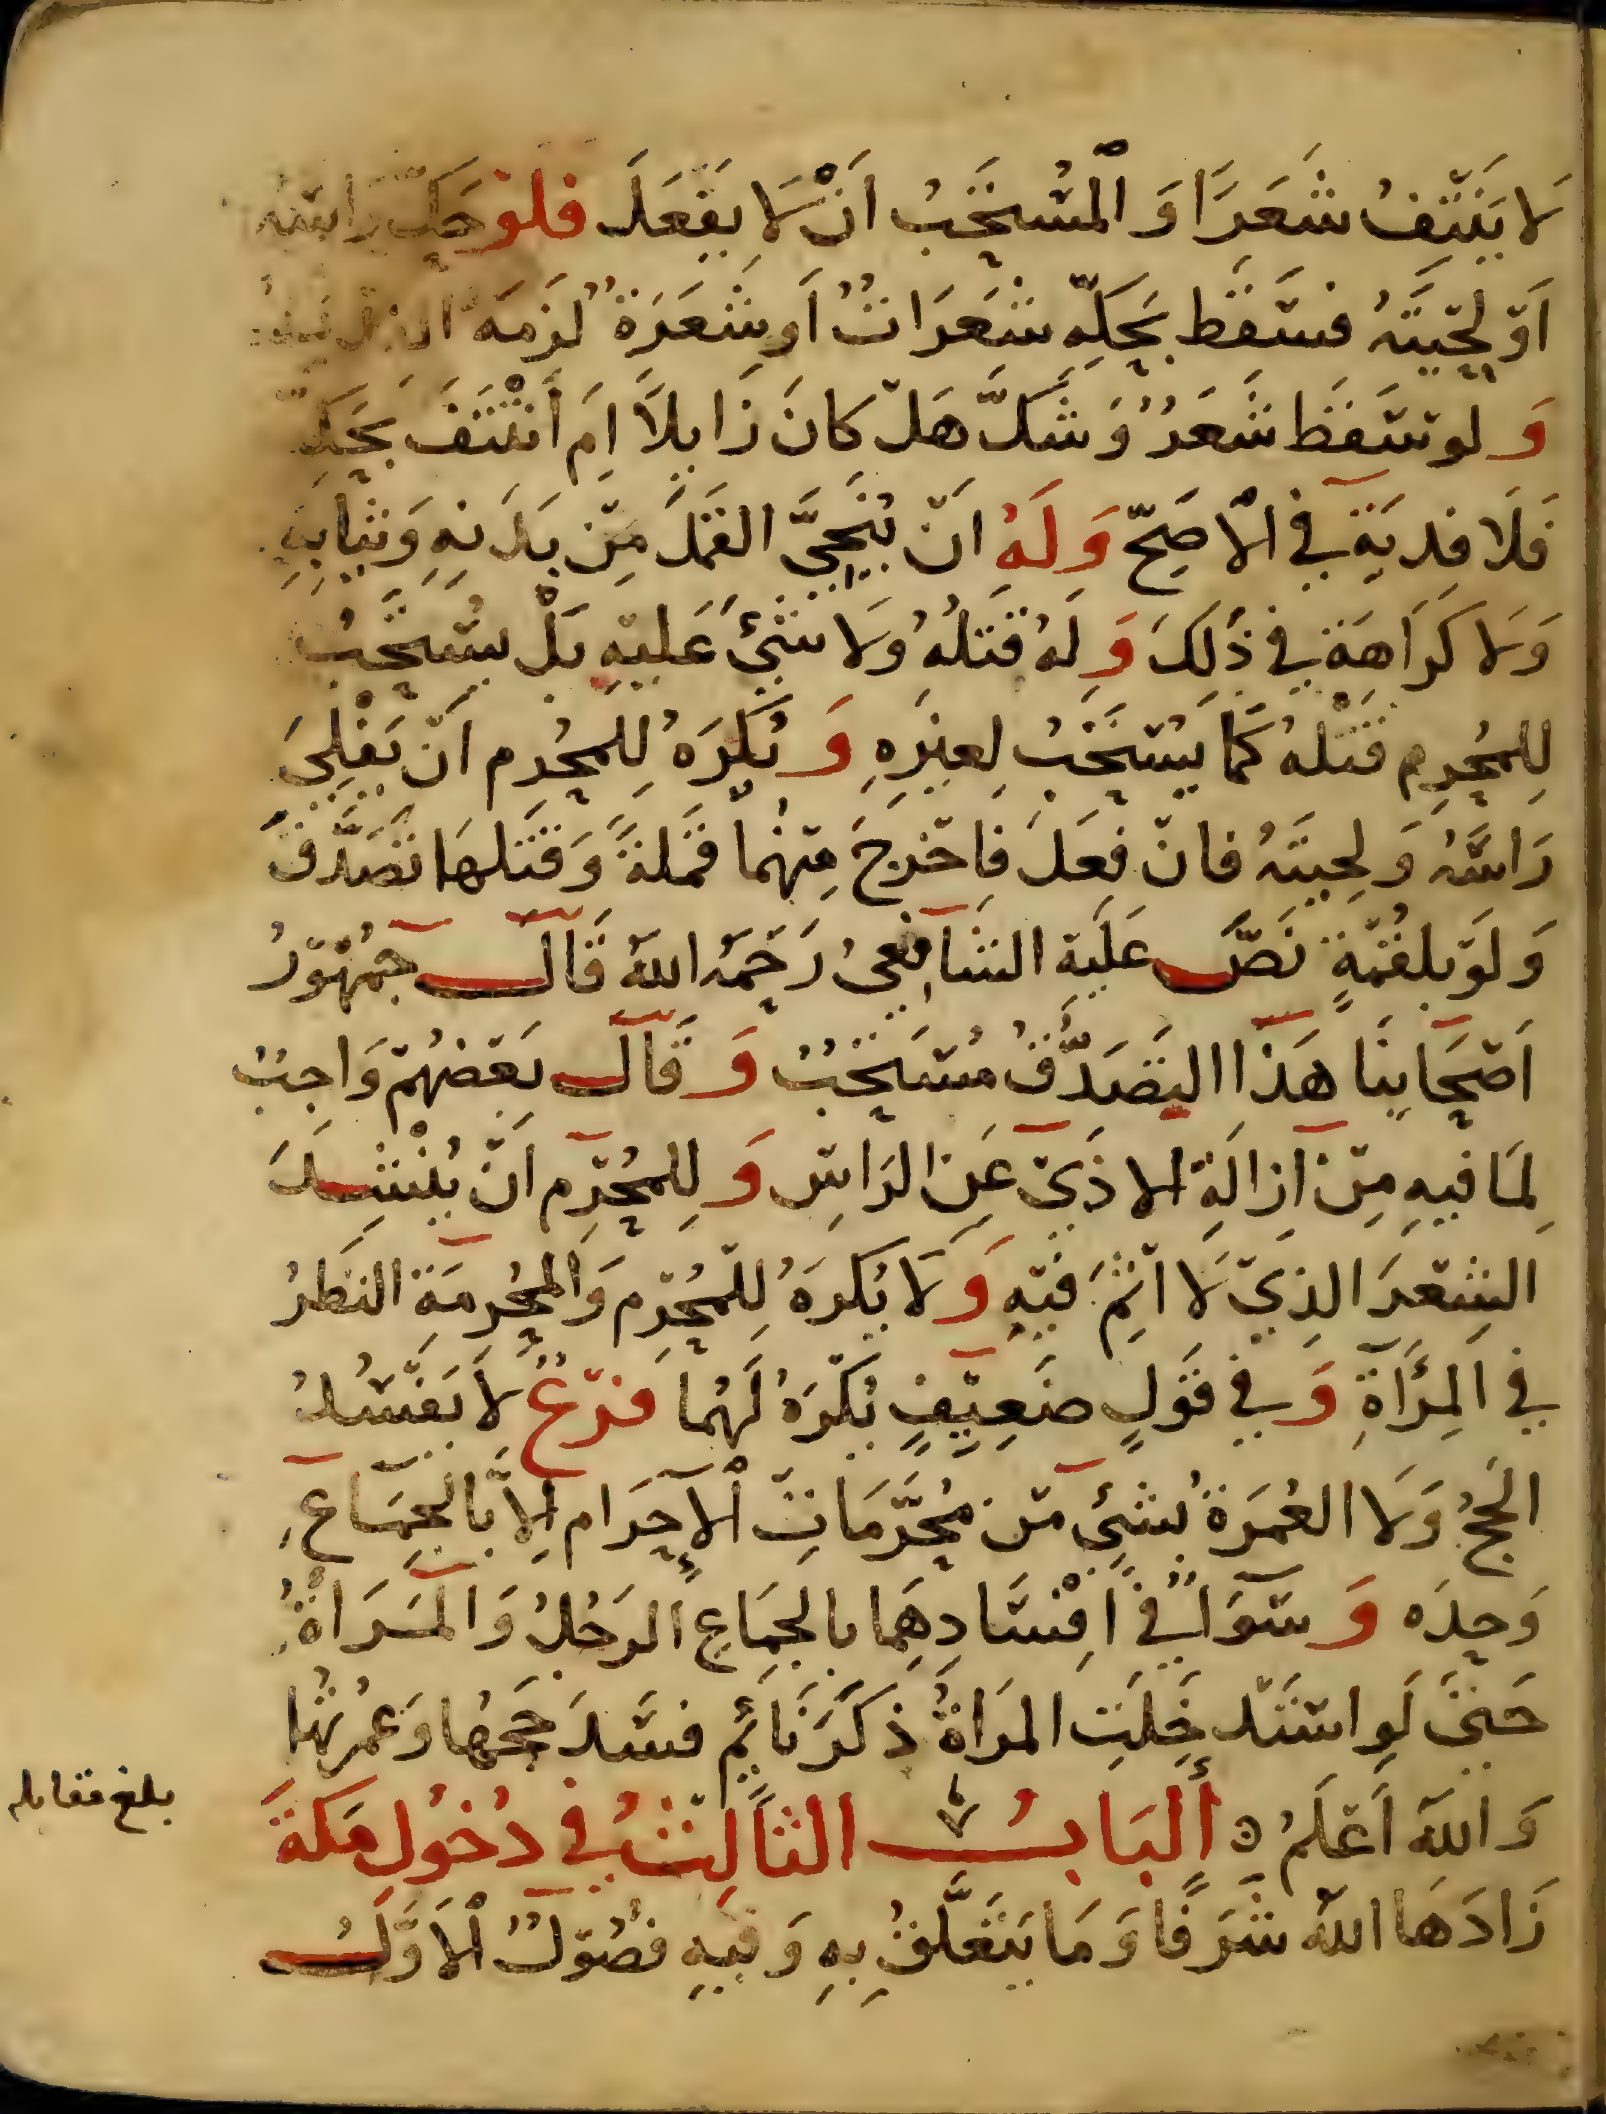 لا ينتف شعرا والمستحب ان لا يفعل فلو حك راسه
او لحيته فسقط بحكه شعرات او شعرة لزمه
ولو سقط شعر وشك هل كان زايلا ام انتتف بحكه
فلا فدية في الاصح وله ان ينحي القمل من بدنه وثيابه
ولا كراهة في ذلك وله قتله ولا شئ عليه بل يستحب
للمحرم قتله كما يستحب لغيره ويكره للمحرم ان يفلي
راسه ولحيته فان فعل فاخرج منهما قملة وقتلها تصدق
ولو بلقمة نص عليه الشافعي رحمه الله قال جمهور
اصحابنا هذا التصدق مستحب وقال بعضهم واجب
لما فيه من ازالة الاذي عن الراس وللمحرم ان ينشد
الشعر الذي لا اثم فيه ولا يكره للمحرم والمحرمة النظر
في المرآة وفي قول ضعيف يكره لهما فرع لا يفسد
الحج ولا العمرة بشئ من محرمات الاحرام الا بالجماع
وحده وسوا في افسادهما بالجماع الرجل والمراة
حتى لو استدخلت المراة ذكر نائم فسد حجها وعمرتها
والله اعلم ه الباب الثالث في دخول مكة
بلغ مقابله
زادها الله شرفا وما يتعلق به وفيه فصول الاول